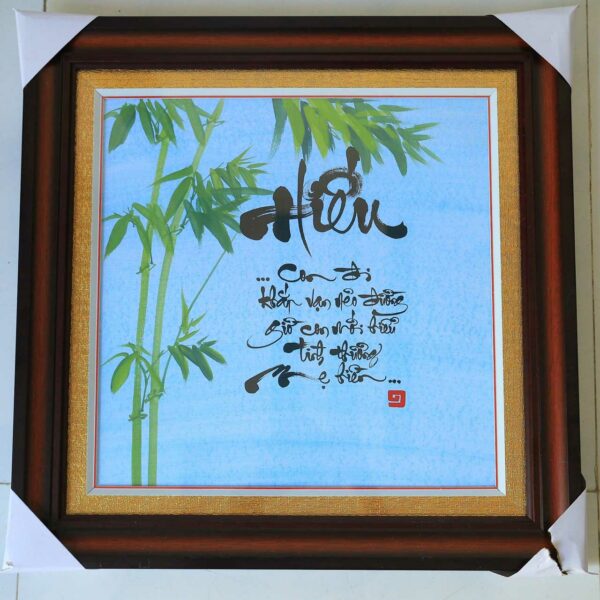 Hiểu
... Con đi
khắp vạn nẻo đường
giờ con mới hiểu
tình thương
Mẹ hiền ...